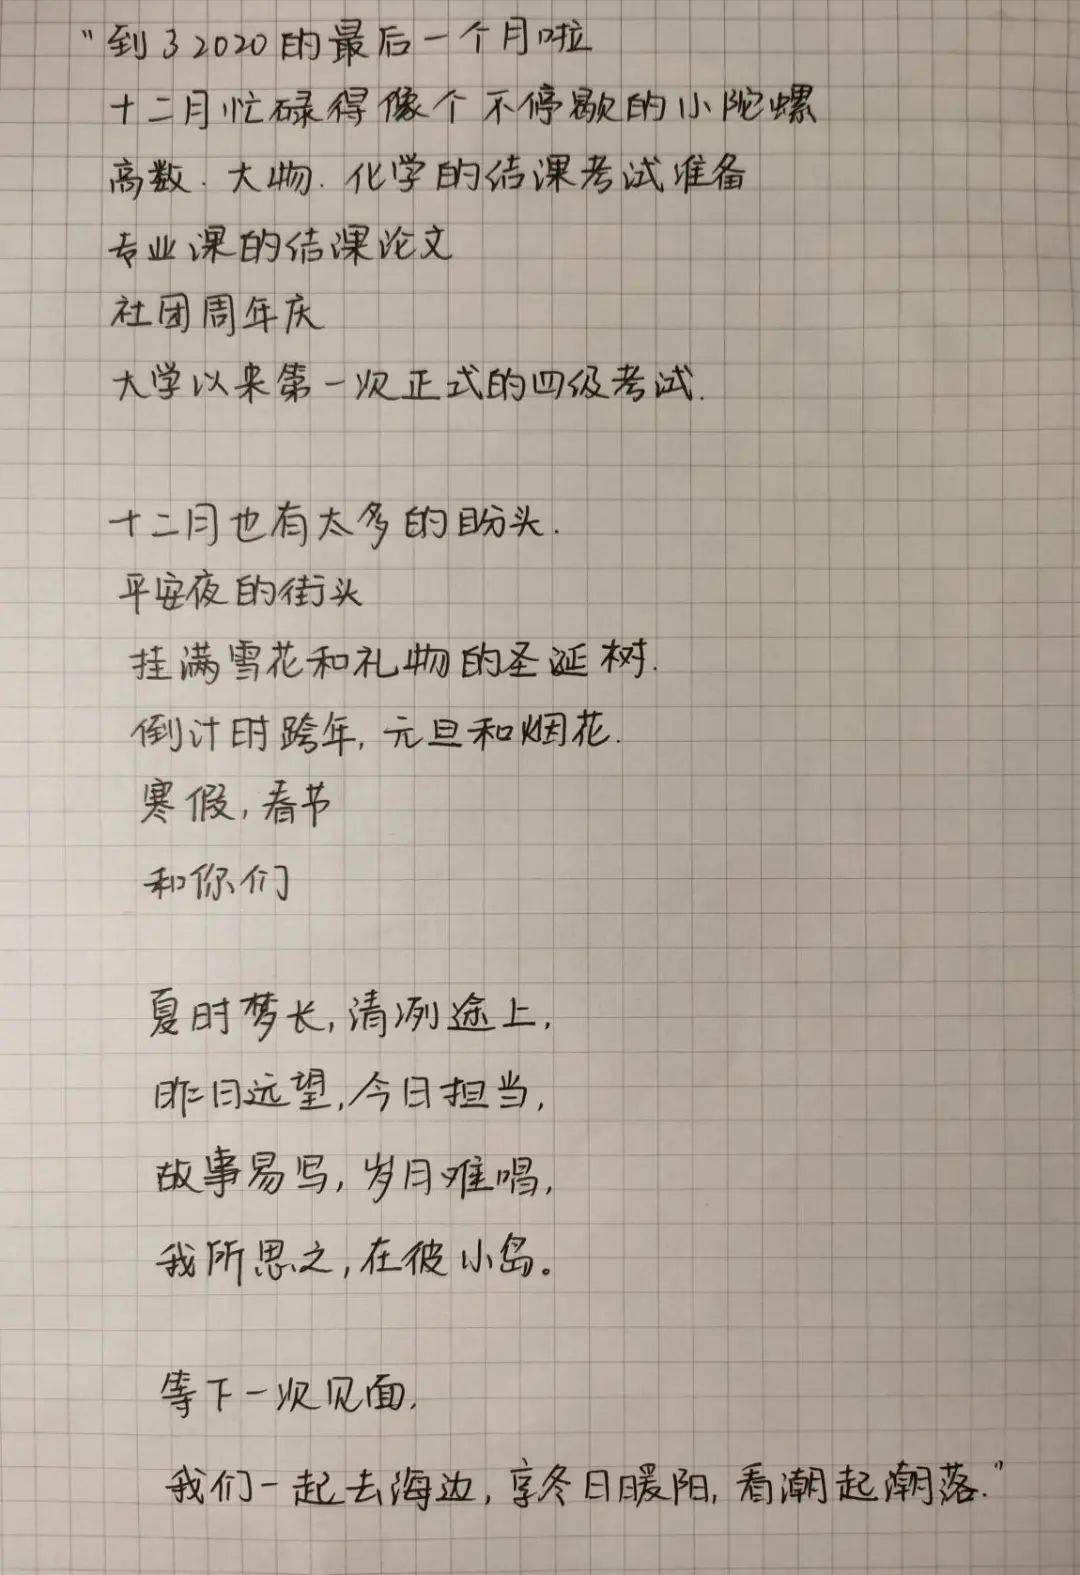 “到了2020的最后一个月啦
十二月忙碌得像个不停歇的小陀螺
高数.大物.化学的结课考试准备
专业课的结课论文
社团周年庆
大学以来第一次正式的四级考试.
十二月也有太多的盼头.
平安夜的街头
挂满雪花和礼物的圣诞树.
倒计时跨年,元旦和烟花.
寒假,春节
和你们
夏时梦长,清冽途上,
昨日远望,今日担当,
故事易写,岁月难唱,
我所思之,在彼小岛。
等下一次见面,
我们一起去海边,享冬日暖阳,看潮起潮落.”